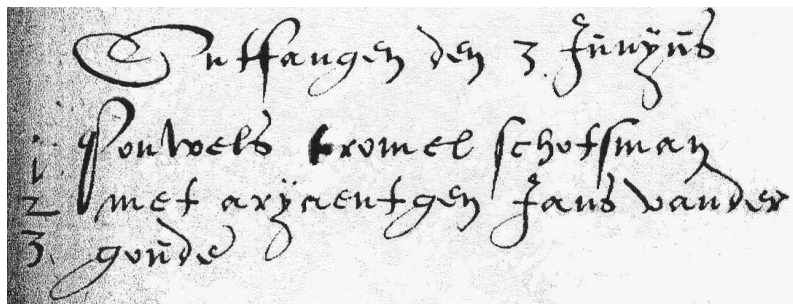 Ontfangen den 3 Junyus
1 Pouwels tromel schotsman
2 met aryaentgen Jans vander
3 goude